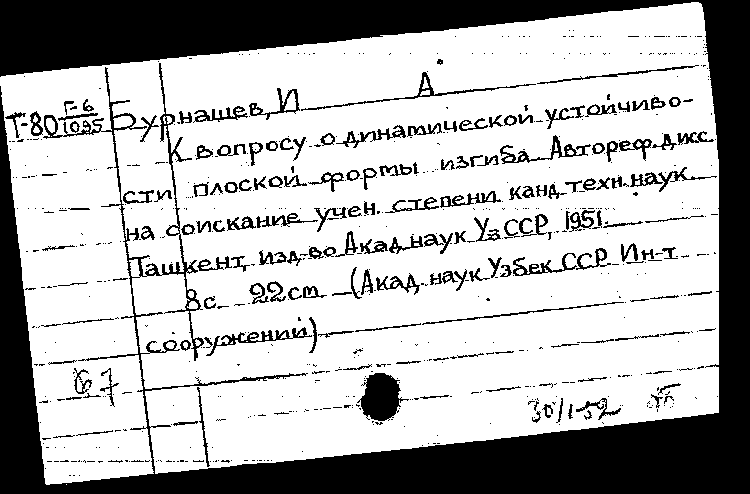 Т-80 Г-6/1095 Бурнашев, И А.
К вопросу о динамической устойчиво-
сти плоской формы изгиба. Автореф. дисс.
на соискание учен. степени канд. техн. наук.
Ташкент, изд-во Акад. наук УзССР, 1951.
8с. 22cm (Акад. наук Узбек ССР Ин-т
сооружений)
67
30/1-52